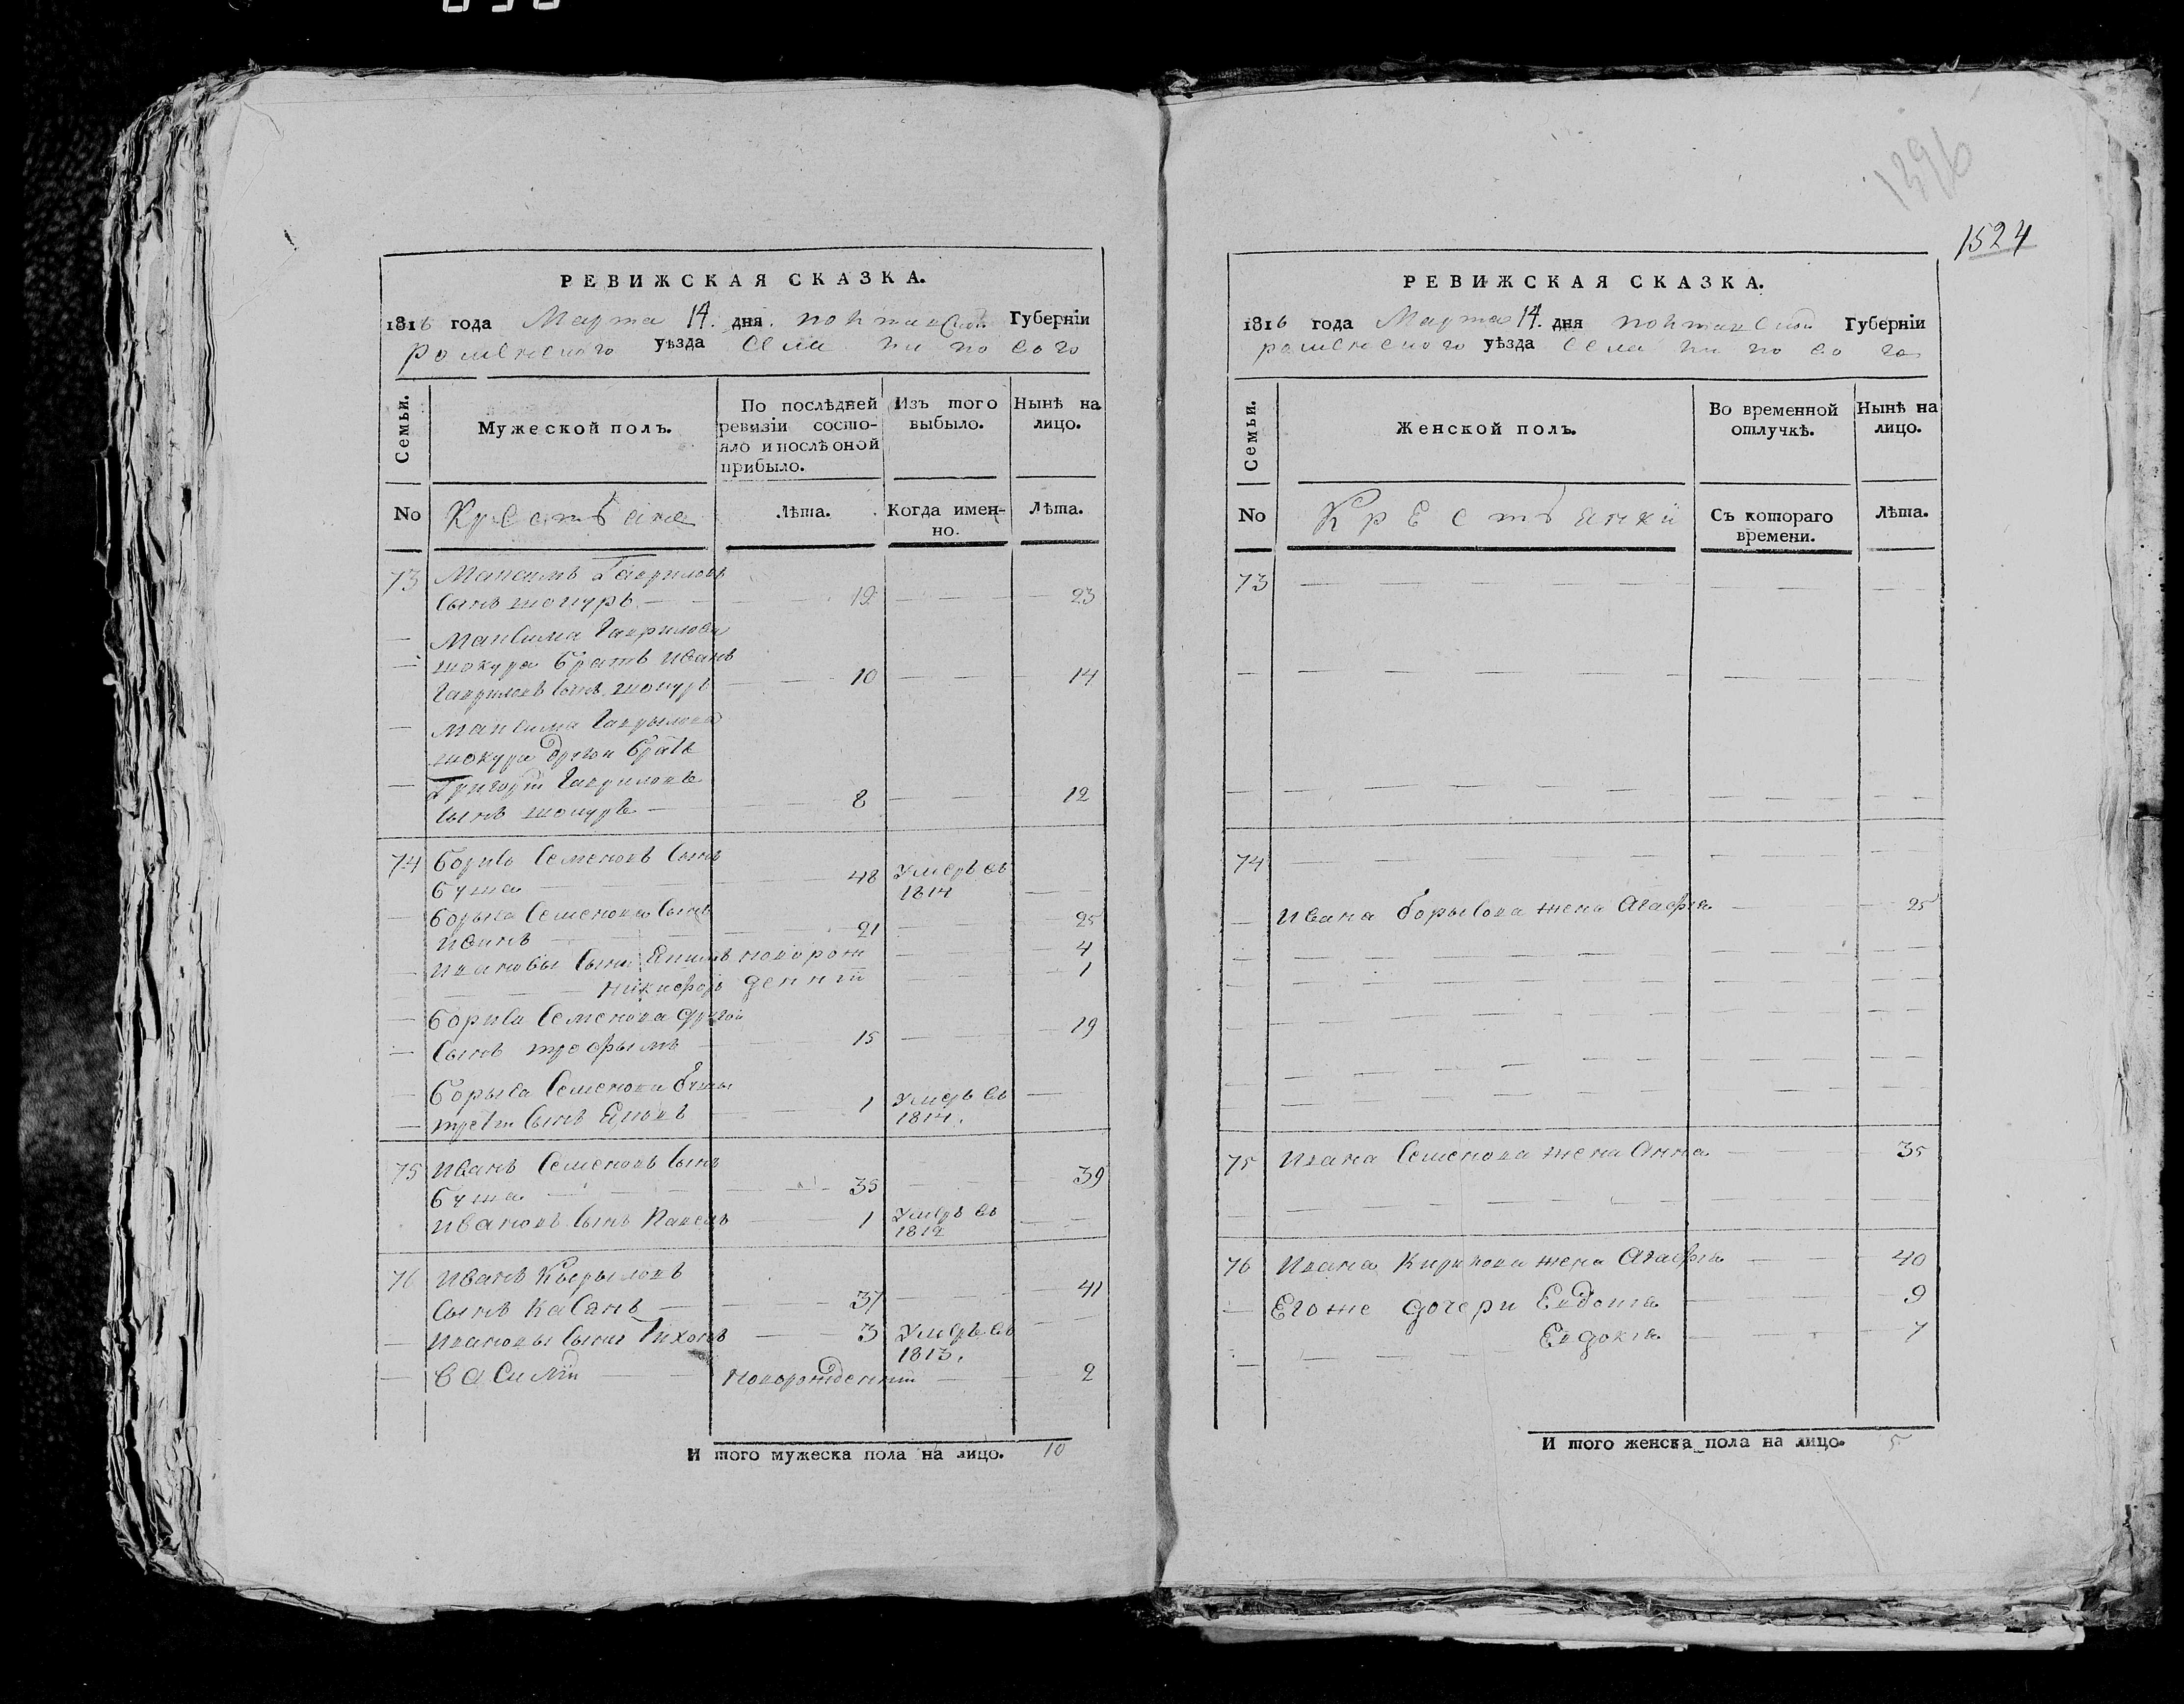 1396
1524
РЕВИЖСКАЯ СКАЗКА.
1816 года Марта 14. дня. полтавской Губерніи
роменского уѣзда села
Семьи.
Мужеской полъ.
По послѣдней ревизіи состо-
яло и послѣ оной прибыло.
Изъ того выбыло.
Нынѣ на лицо.
No Крестьяне Лѣта. Когда имен-
но. Лѣта.
73 Максимъ Гавриловъ
сынъ шокуръ 19 23
Максима Гаврилова
шокура братъ иванъ
Гавриловъ сынъ шокуръ 10 14
Максима Гаврылова
шокура другои братъ
Григорій Гавриловъ
сынъ шокуръ 8 12
74 борисъ Семеновъ сынъ
буша 48 Умеръ въ
1814
борыса Семенова сынъ
иванъ 21 25
ивановы сыны новорож 4
никифоръ денніи 1
бориса Семенова другой
сынъ трофымъ 15 19
борыса Семенова буши
третій сынъ 1 Умеръ въ
1814.
75 иванъ Семеновъ сынъ
буша 35 39
ивановъ сынъ Павелъ 1 Умеръ въ
1812
76 иванъ Кырыловъ
сынъ Касанъ 37 41
ивановы сыны Тихонъ 3 Умеръ въ
1813.
василій новорожденній 2
И того мужеска пола на лицо. 10
РЕВИЖСКАЯ СКАЗКА.
1816 года Марта 14. дня полтавской Губерніи
роменского уѣзда села
Семьи.
Женской полъ.
Во временной отлучкѣ.
Нынѣ на лицо.
No Крестьянки Съ котораго
времени. Лѣта.
73
74
ивана борысова жена Агафія 25
75 ивана Семенова жена Анна 35
76 ивана Кирилова жена Агафія 40
Егоже дочери 9
Евдокія 7
И того женска пола на лицо. 5